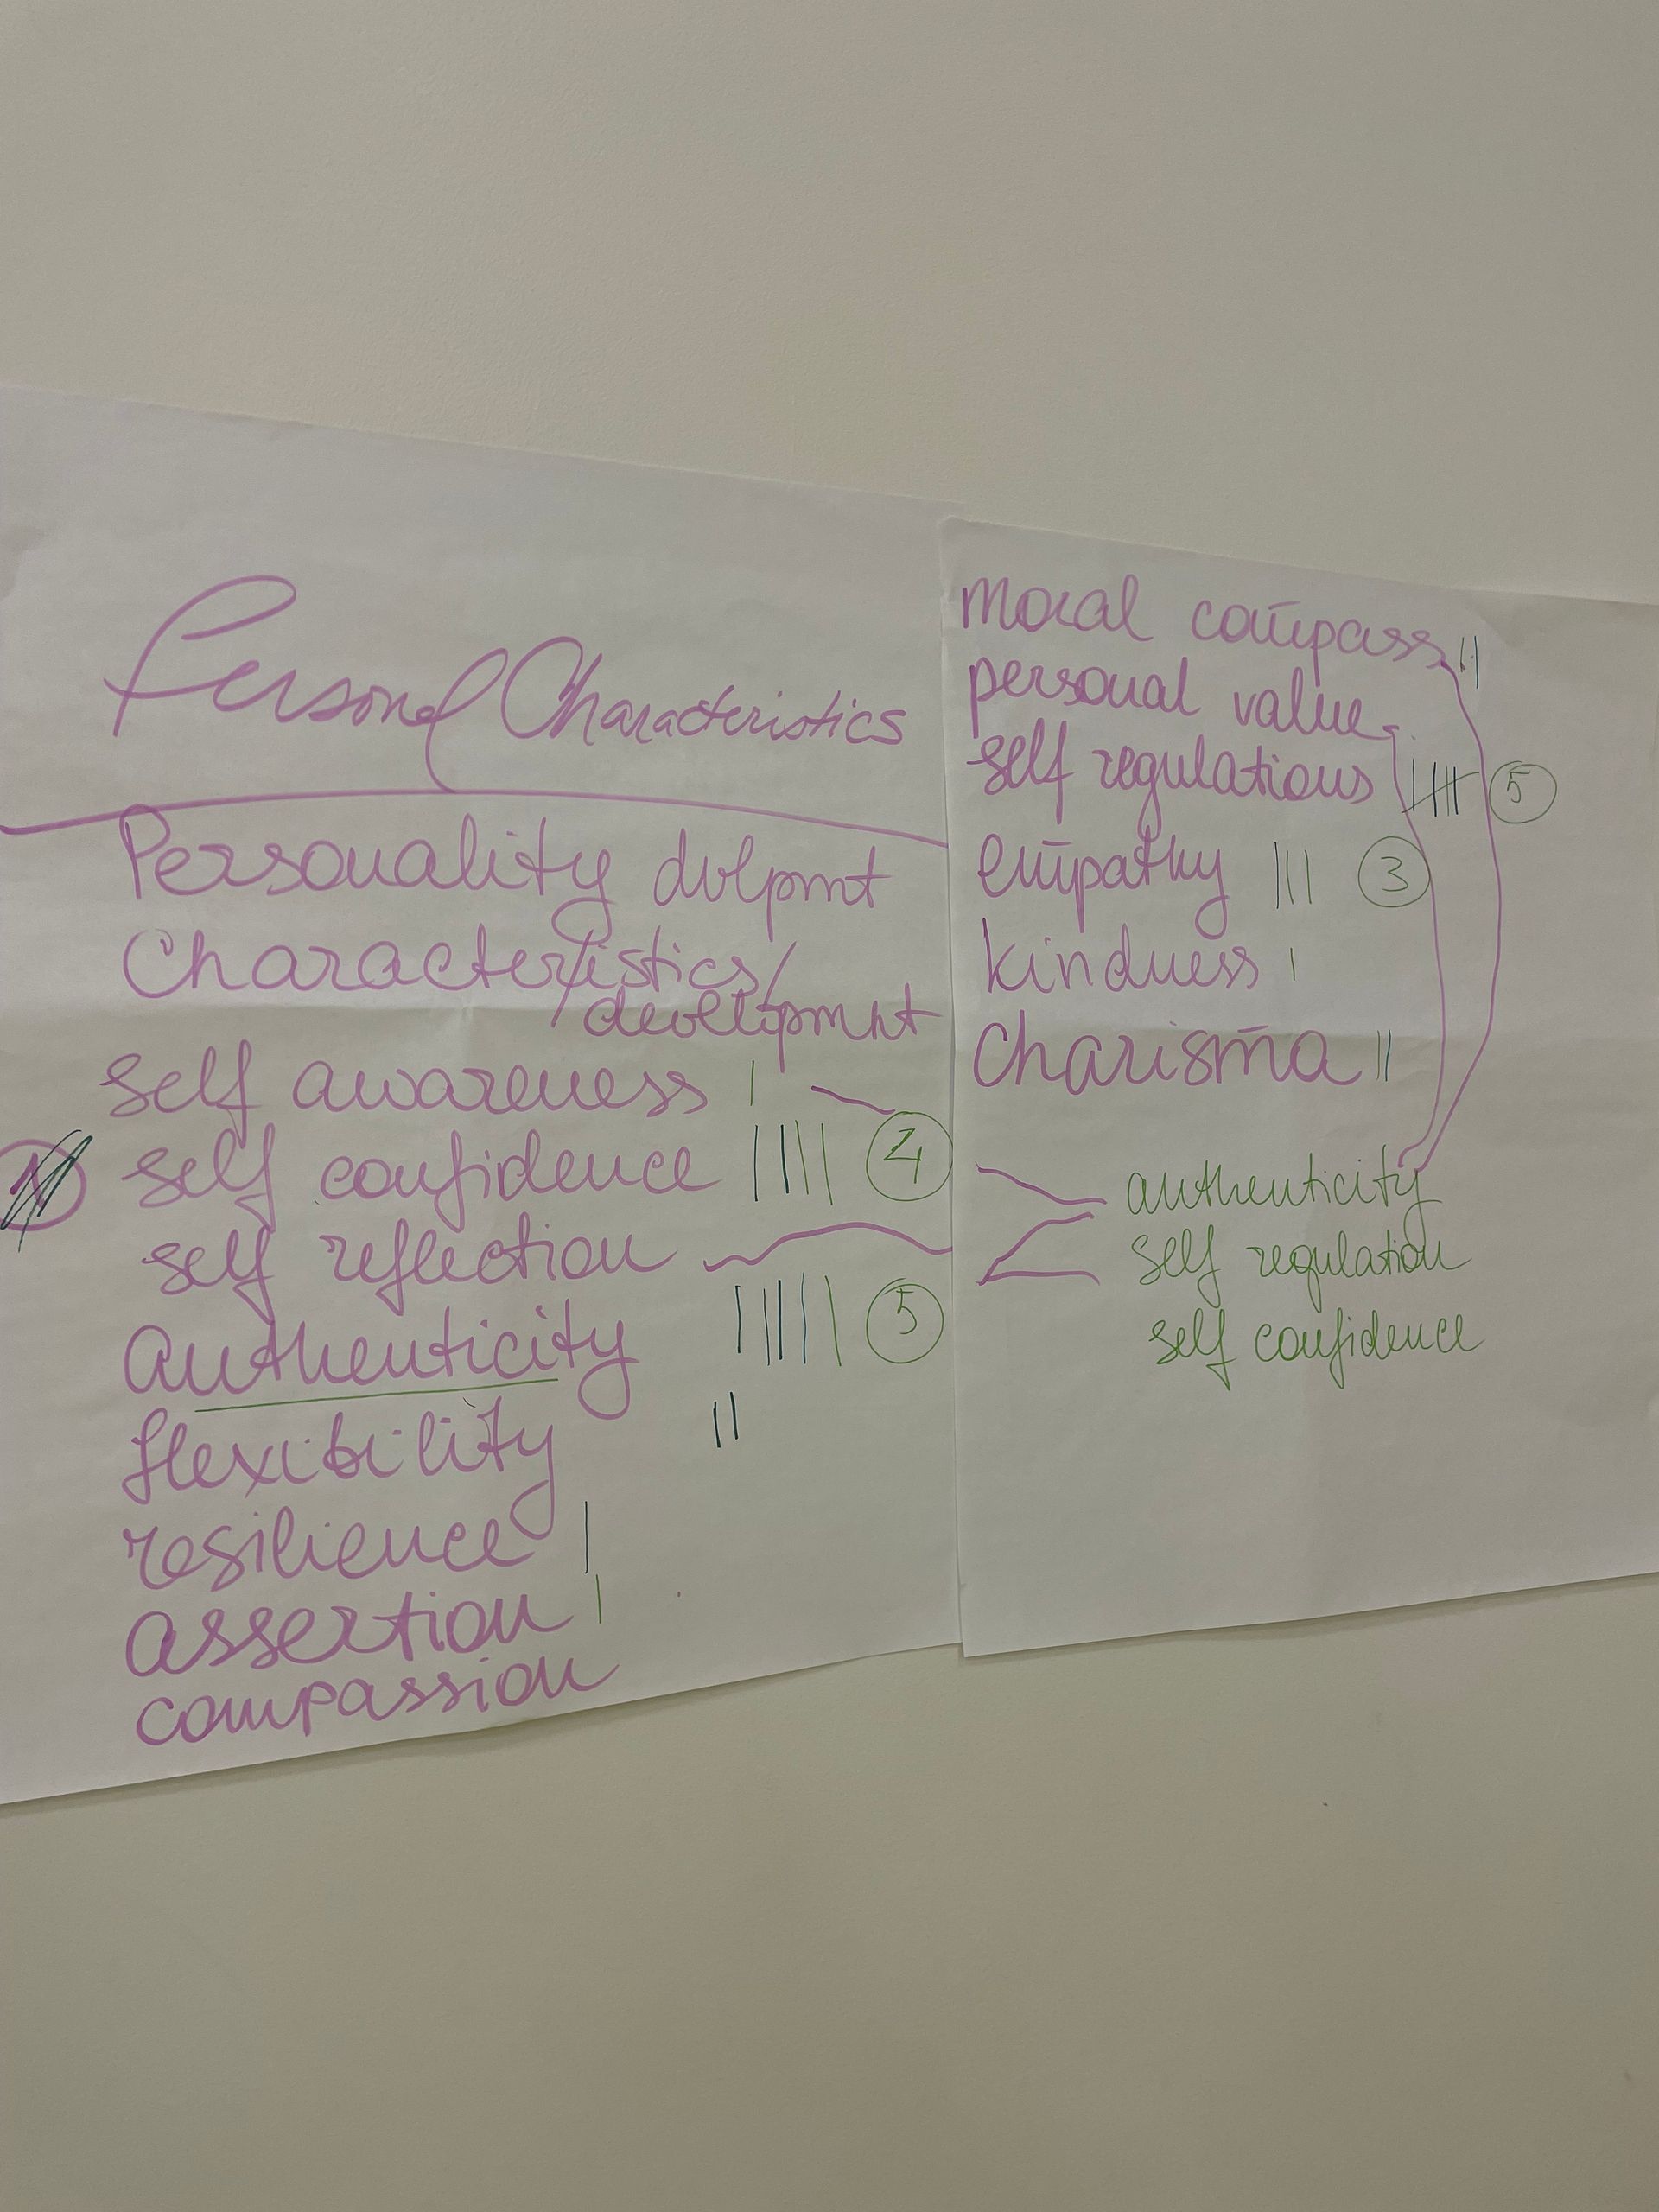 Personal Characteristics
Personality dvlpmt
Character/istics/
/development
self awareness |
self confidence ||||| 4
self reflection
authenticity ||||| 5
flexibility ||
resilience |
assertion |
compassion
moral compass ||
personal value
self regulations 5
empathy ||| 3
kindness |
charisma ||
authenticity
self regulation
self confidence